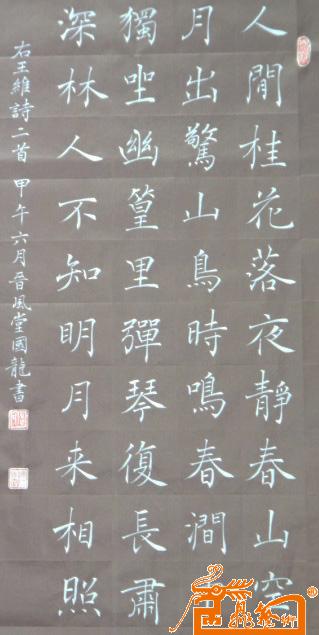 人閒桂花落夜靜春山空
月出驚山鳥時鳴春澗中
獨坐幽篁里彈琴復長肅
深林人不知明月来相照
右王維詩二首 甲午六月晉風堂國龍書